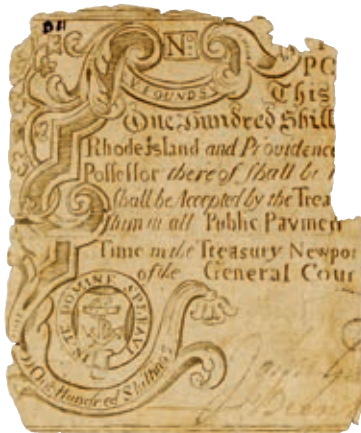 BH
No:
V POUNDS
This
One Hundred Shill
Rhode Island and Providence
Possessor there of shall be
shall be Accepted by the Trea
them in all Public Paymen
Time in the Treasury Newpor
of the General Cour
IN TE DOMINE SPERAVI
One Hundred Shillings